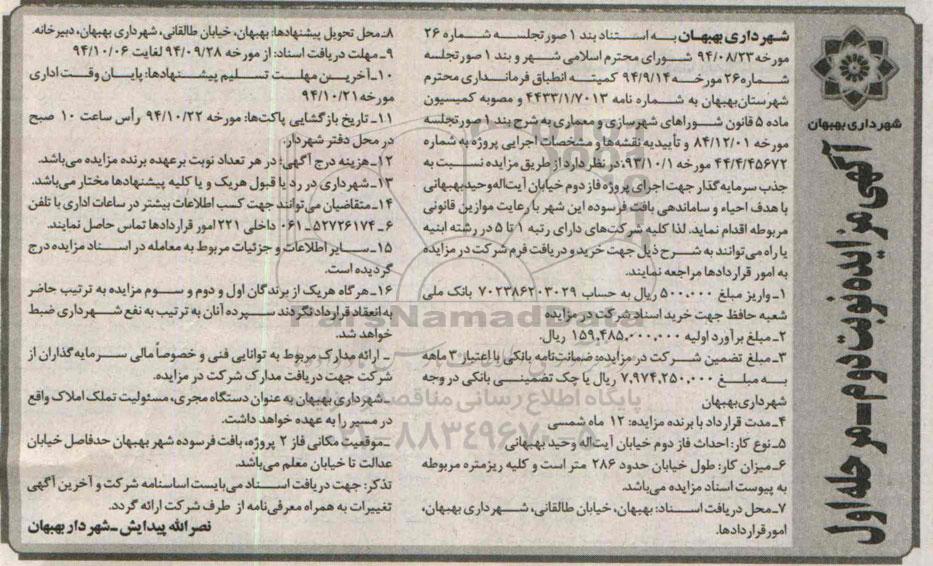 شهرداری بهبهان
آگهی مزایده نوبت دوم - مرحله اول
شهرداری بهبهان به استناد بند ۱ صورتجلسه شماره ۲۶
مورخه ۹۴/۰۸/۲۳ شورای محترم اسلامی شهر و بند ۱ صورتجلسه
شماره ۲۶ مورخه ۹۴/۹/۱۴ کمیته انطباق فرمانداری محترم
شهرستان بهبهان به شماره نامه ۴۴۳۳/۱/۷۰۱۳ و مصوبه کمیسیون
ماده ۵ قانون شوراهای شهرسازی و معماری به شرح بند ۱ صورتجلسه
مورخه ۸۴/۱۲/۰۱ و تأییدیه نقشه‌ها و مشخصات اجرایی پروژه به شماره
۴۴/۴/۴۵۶۷۲ مورخه ۹۳/۱۰/۱: در نظر دارد از طریق مزایده نسبت به
جذب سرمایه‌گذار جهت اجرای پروژه فاز دوم خیابان آیت‌اله وحید بهبهانی
با هدف احیاء و ساماندهی بافت فرسوده این شهر با رعایت موازین قانونی
مربوطه اقدام نماید. لذا کلیه شرکت‌های دارای رتبه ۱ تا ۵ در رشته ابنیه
یا راه می‌توانند به شرح ذیل جهت خرید و دریافت فرم شرکت در مزایده
به امور قراردادها مراجعه نمایند.
۱ـ واریز مبلغ ۵۰۰.۰۰۰ ریال به حساب ۷۰۲۳۸۶۲۰۳۰۲۹ بانک ملی
شعبه حافظ جهت خرید اسناد شرکت در مزایده
۲ـ مبلغ برآورد اولیه ۱۵۹.۴۸۵.۰۰۰.۰۰۰ ریال.
۳ـ مبلغ تضمین شرکت در مزایده: ضمانت‌نامه بانکی با اعتبار ۳ ماهه
به مبلغ ۷.۹۷۴.۲۵۰.۰۰۰ ریال یا چک تضمینی بانکی در وجه
شهرداری بهبهان
۴ـ مدت قرارداد با برنده مزایده: ۱۲ ماه شمسی
۵ـ نوع کار: احداث فاز دوم خیابان آیت‌اله وحید بهبهانی
۶ـ میزان کار: طول خیابان حدود ۲۸۶ متر است و کلیه ریزمتره مربوطه
به پیوست اسناد مزایده می‌باشد.
۷ـ محل دریافت اسناد: بهبهان، خیابان طالقانی، شهرداری بهبهان،
امور قراردادها.
۸ـ محل تحویل پیشنهادها: بهبهان، خیابان طالقانی، شهرداری بهبهان، دبیرخانه.
۹ـ مهلت دریافت اسناد: از مورخه ۹۴/۰۹/۲۸ لغایت ۹۴/۱۰/۰۶
۱۰ـ آخرین مهلت تسلیم پیشنهادها: پایان وقت اداری
مورخه ۹۴/۱۰/۲۱
۱۱ـ تاریخ بازگشایی پاکت‌ها: مورخه ۹۴/۱۰/۲۲ رأس ساعت ۱۰ صبح
در محل دفتر شهردار.
۱۲ـ هزینه درج آگهی: در هر تعداد نوبت برعهده برنده مزایده می‌باشد.
۱۳ـ شهرداری در رد یا قبول هریک و یا کلیه پیشنهادها مختار می‌باشد.
۱۴ـ متقاضیان می‌توانند جهت کسب اطلاعات بیشتر در ساعات اداری با تلفن
۶ـ ۵۲۷۳۶۱۷۴ـ ۰۶۱ داخلی ۲۲۱ امور قراردادها تماس حاصل نمایند.
۱۵ـ سایر اطلاعات و جزئیات مربوط به معامله در اسناد مزایده درج
گردیده است.
۱۶ـ هرگاه هریک از برندگان اول و دوم و سوم مزایده به ترتیب حاضر
به انعقاد قرارداد نگردند سپرده آنان به ترتیب به نفع شهرداری ضبط
خواهد شد.
ـ ارائه مدارک مربوط به توانایی فنی و خصوصاً مالی سرمایه‌گذاران از
شرکت جهت دریافت مدارک شرکت در مزایده.
ـ شهرداری بهبهان به عنوان دستگاه مجری، مسئولیت تملک املاک واقع
در مسیر را به عهده خواهد داشت.
ـ موقعیت مکانی فاز ۲ پروژه، بافت فرسوده شهر بهبهان حدفاصل خیابان
عدالت تا خیابان معلم می‌باشد.
تذکر: جهت دریافت اسناد می‌بایست اساسنامه شرکت و آخرین آگهی
تغییرات به همراه معرفی‌نامه از طرف شرکت ارائه گردد.
نصرالله پیدایش ـ شهردار بهبهان
ParsNamadData
پایگاه اطلاع رسانی مناقصه